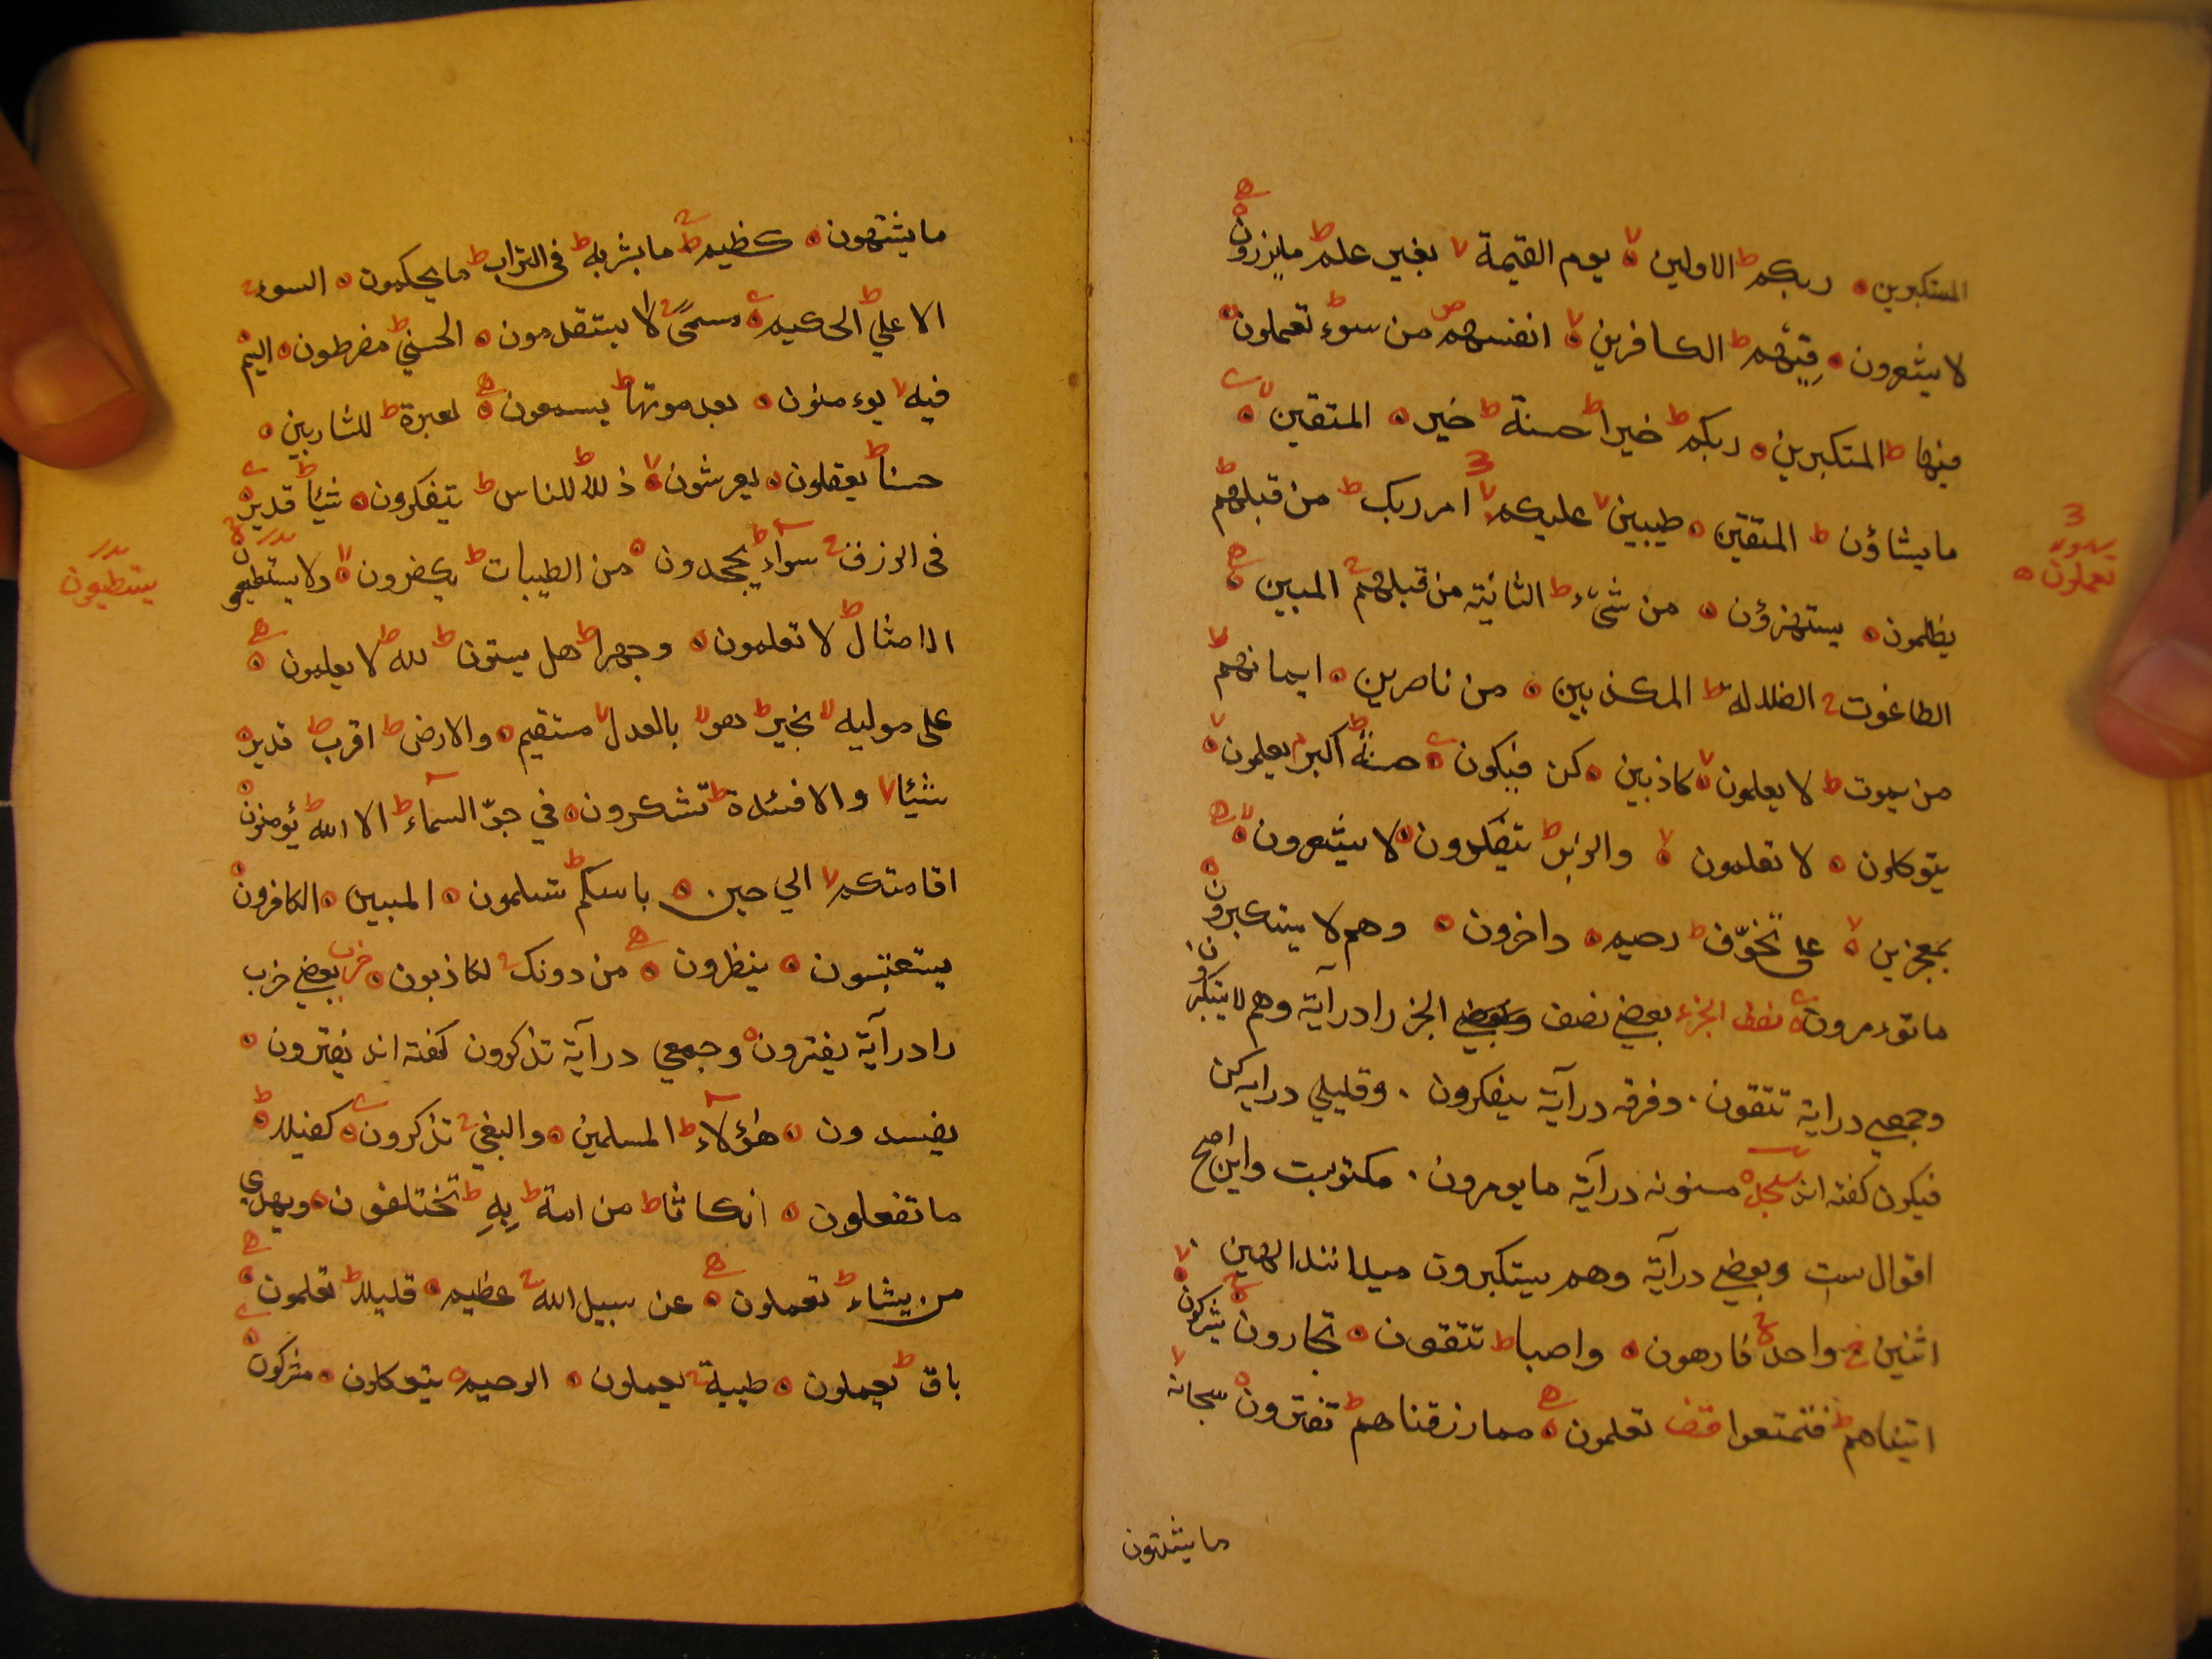 المستكبرين ربكم ط الاولين لا يوم القيمة لا بغير علم ط مايزرون
لا يشعرون قبلهم ط الكافرين لا انفسهم ص من سوء ط تعملون
فيها ط المتكبرين ربكم ط خيرا ط حسنة ط خير المتقين لا
مايشاؤن ط المتقين طيبين لا عليكم لا امر ربك ط من قبلهم ط
يظلمون يستهزؤن من شيء ط الثانية من قبلهم المبين
تعملون
الطاغوت الضلالة ط المكذبين من ناصرين ايمانهم لا
من يموت ط لا يعلمون لا كاذبين كن فيكون حسنة ط اكبر م يعلمون لا
يتوكلون لا تعلمون لا والزبر ط يتفكرون لا يشعرون لا
بمعجزين لا على تخوّف ط رحيم داخرون وهم لا يستكبرون
ما تؤمرون نصف الجزء بعضي نصف وبعضي الجز را در آية وهم لا يستكبرون
وجمعي در اية تتقون . وفرقه در آية يتفكرون . وقليلي در ايه كن
فيكون كفته اند در آية مايومرون . مكتوبست واين اصح
اقوال ست وبعضي در آية وهم يستكبرون الهين
اثنين ج واحد فارهون واصبا ط تتقون تجارون يشركون لا
اتيناهم ط فتمتعوا قف تعلمون مما رزقناهم ط تفترون سبحانه لا
مايشتهون
مايشتهون كظيم ما بشر به ط في التراب ط مايحكمون السوء
الاعلي ط الحكيم مسمًى لا يستقدمون الحسنى ط مفرطون اليم
فيه لا يوءمنون بعد موتها ط يسمعون لعبرة ط للشاربين
حسنا ط يعقلون يعرشون لا ذللا ط للناس ط يتفكرون شيأ ط قدير
في الرزق سواء ط يجحدون من الطيبات ط يكفرون لا ولا يستطيعون
يستطيعون
الامثال ط لا تعلمون وجهرا ط هل يستون ط لله ط لا يعلمون
على موليه لا بخير ط هو لا بالعدل لا مستقيم والارض ط اقرب ط قدير
شيئا لا والافئدة ط تشكرون في جوّ السماء ط الا الله ط يؤمنون
اقامتكم لا الي حين باسكم ط تسلمون المبين الكافرون
يستعتبون ينظرون من دونك لكاذبون بعضي حزب
را در آية يفترون وجمعي در آية تذكرون كفته اند يفترون
يفسدون هؤلاء ط المسلمين والبغي تذكرون كفيلا ط
ما تفعلون انكاثا ط من امة ط بِهِ ط تختلفون ويهدي
من يشاء ط تعملون عن سبيل الله عظيم قليلا ط تعلمون
باق ط يعملون طيبة يعملون الرحيم يتوكلون مشركون